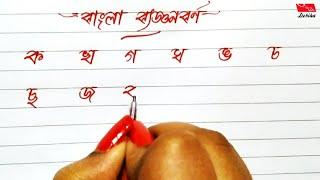 বাংলা ব্যঞ্জনবর্ণ
ক খ গ ঘ ঙ চ
ছ জ